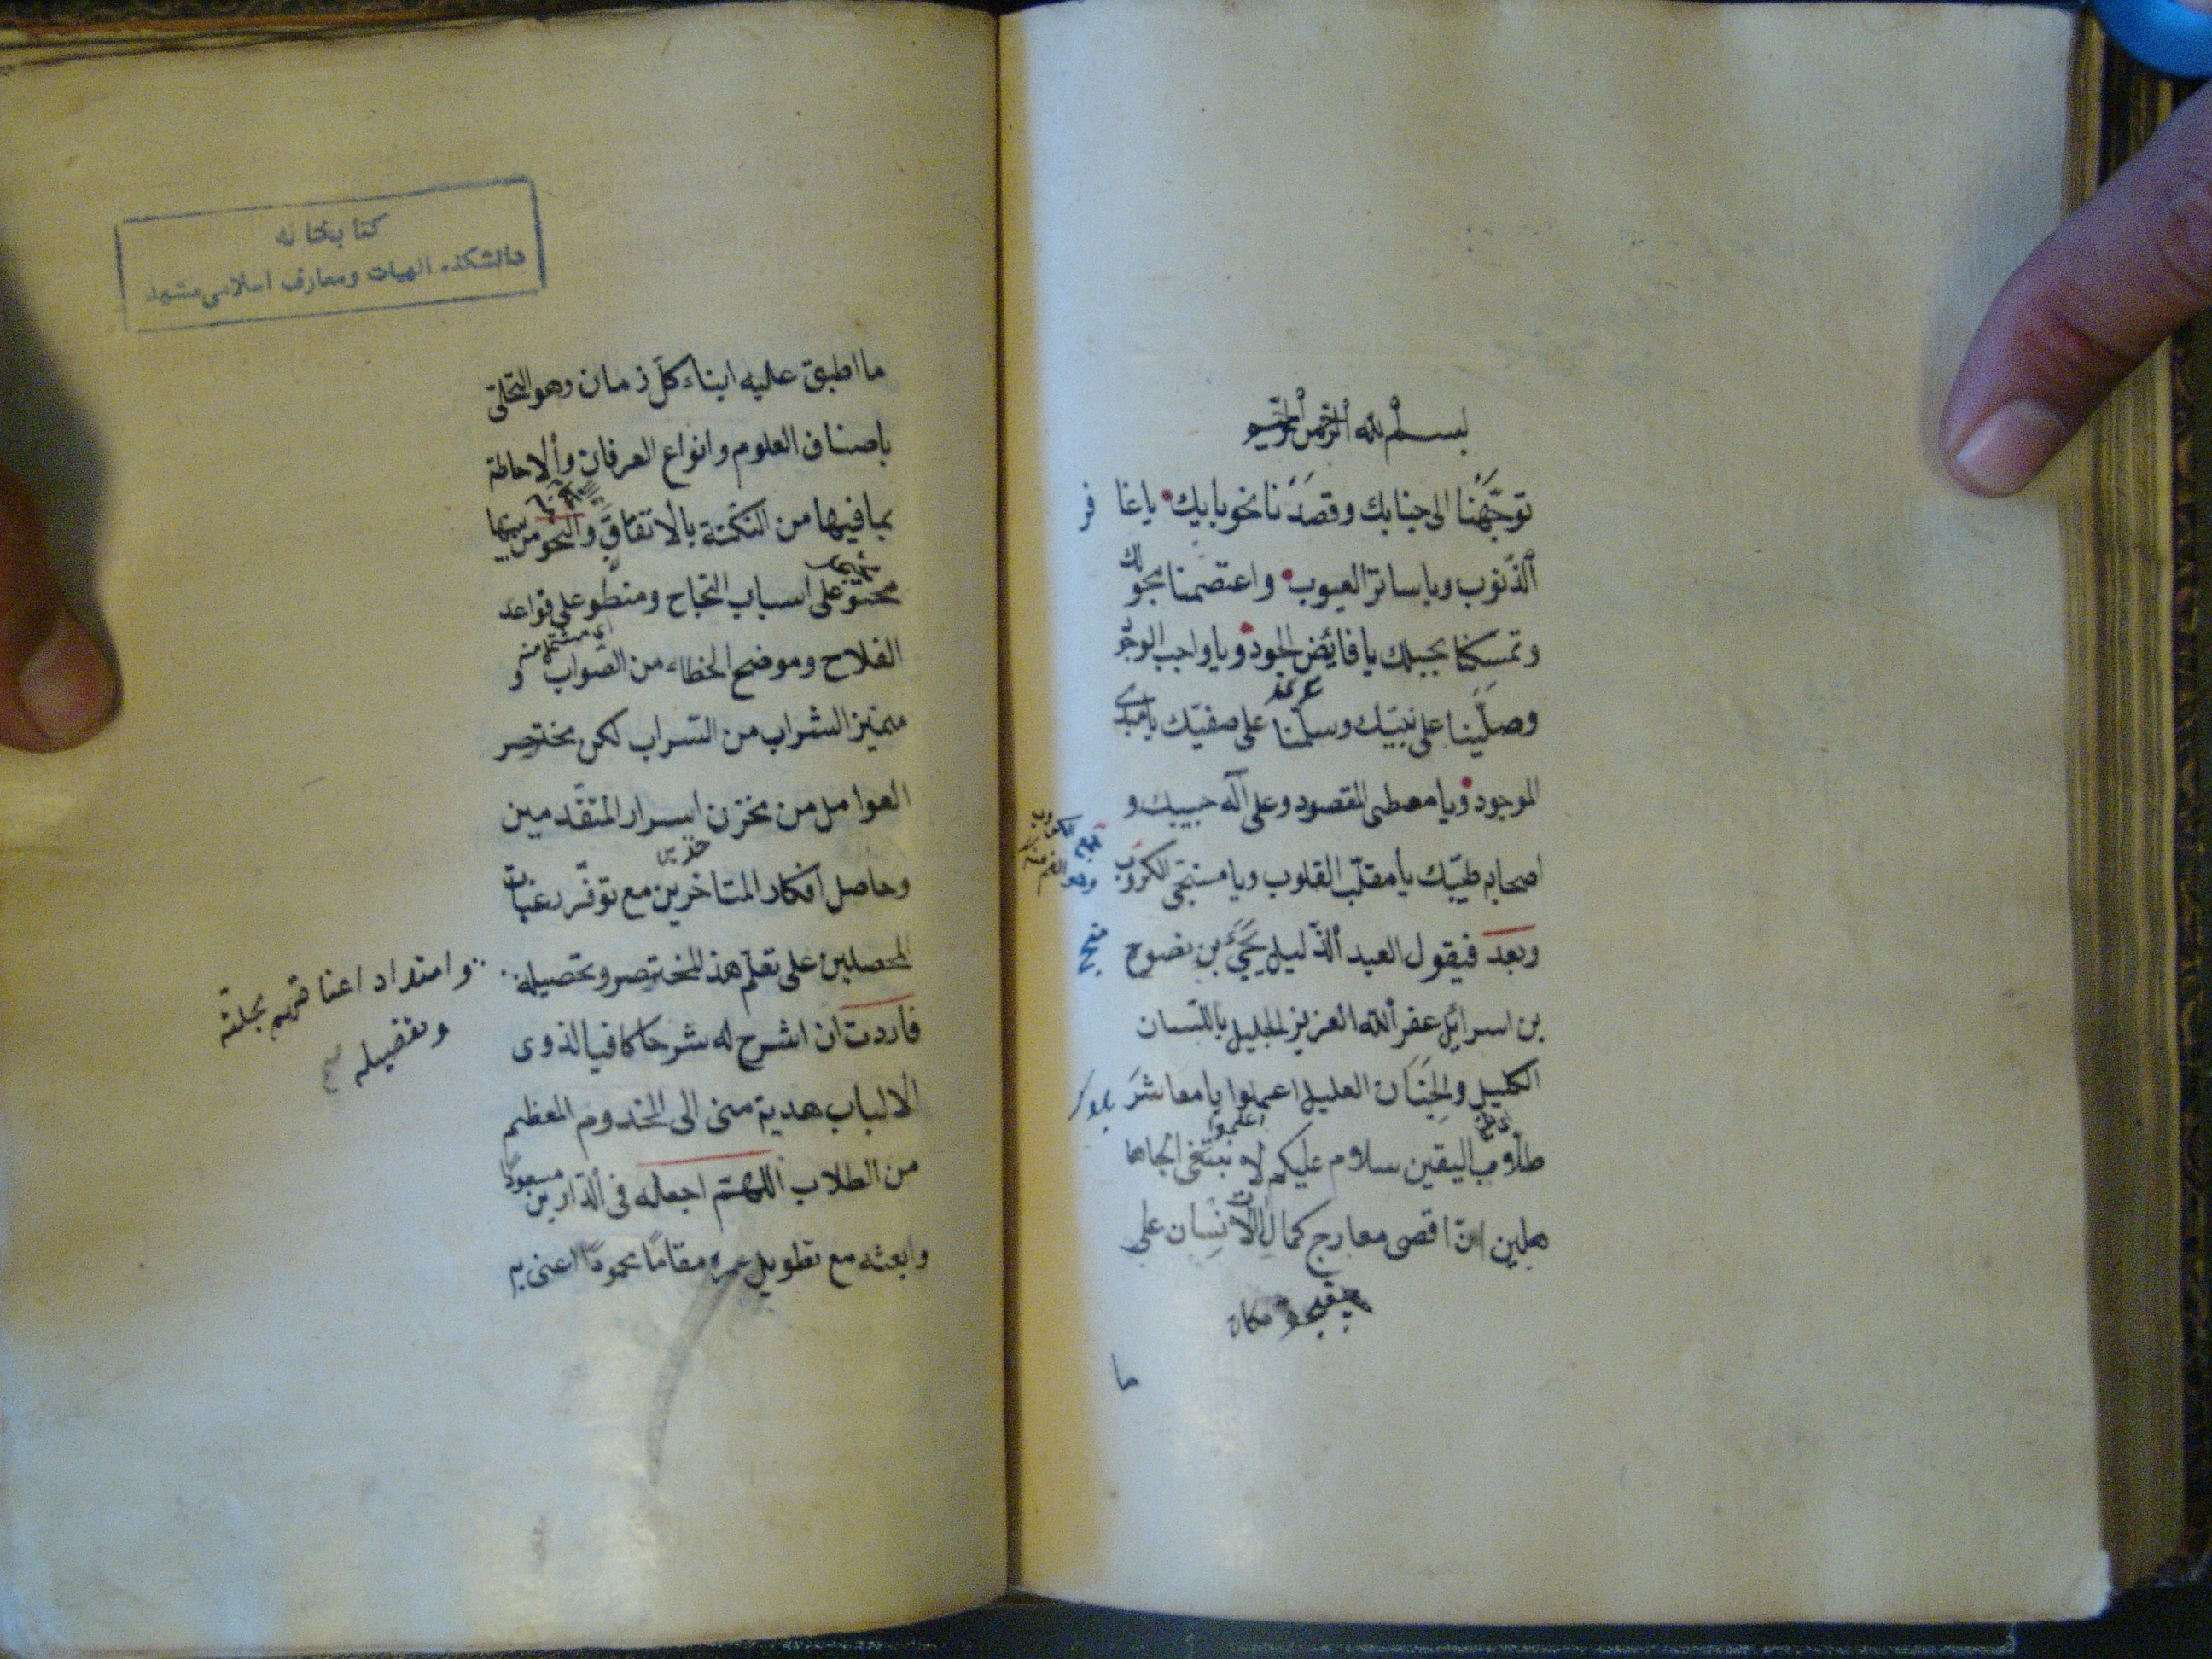 بسم الله الرحمن الرحيم
توجّهنا الى جنابك وقصدنا نحو بابك ياغافر
الذّنوب وياساتر العيوب واعتصمنا بحولك
وتمسكنا بحبلك يا فائض الجود وياواجب الوجود
وصلّينا على نبيّك وسلّمنا على صفيّك يامبدئ
الموجود ويا معطى المقصود وعلى آله حبيبك و
اصحابه طيّبك يا مقلّب القلوب ويا منجى الكروب
وبعد فيقول العبد الذّليل يحيى بن نصوح
بن اسرائل عفر الله العزيز الجليل باللّسان
الكليل والجنان العليل اعملوا يا معاشر
اعلموا
طلّاب اليقين سلام عليكم لا نبتغى الجاهلين
انّ اقصى معارج كمال الانسان على
ما
كتابخانه
دانشكده الهيات ومعارف اسلامى مشهد
ما اطبق عليه ابناء كلّ زمان وهو التحلّى
باصناف العلوم وانواع العرفان والاحاطة
بما فيها من النكتة بالاتفاق والنحو من بينها
محتو على اسباب النجاح ومنطو على قواعد
الفلاح وموضح الخطاء من الصّواب و
متميّز الشراب من السّراب لكن مختصر
العوامل من مخزن اسرار المتقدّمين
وحاصل افكار المتاخرين مع توفّر رغبات
المحصلين على تعلّم هذ المختصر وتحصيله
وامتداد اعناقهم بجملته
وتفضيله
فاردت ان اشرح له شرحا كافيا لذوى
الالباب هدية منى الى المخدوم المعظم
من الطلاب اللهمّ اجعله فى الدّارين مسعودًا
وابعثه مع تطويل عمره مقامًا محمودًا اعنى به